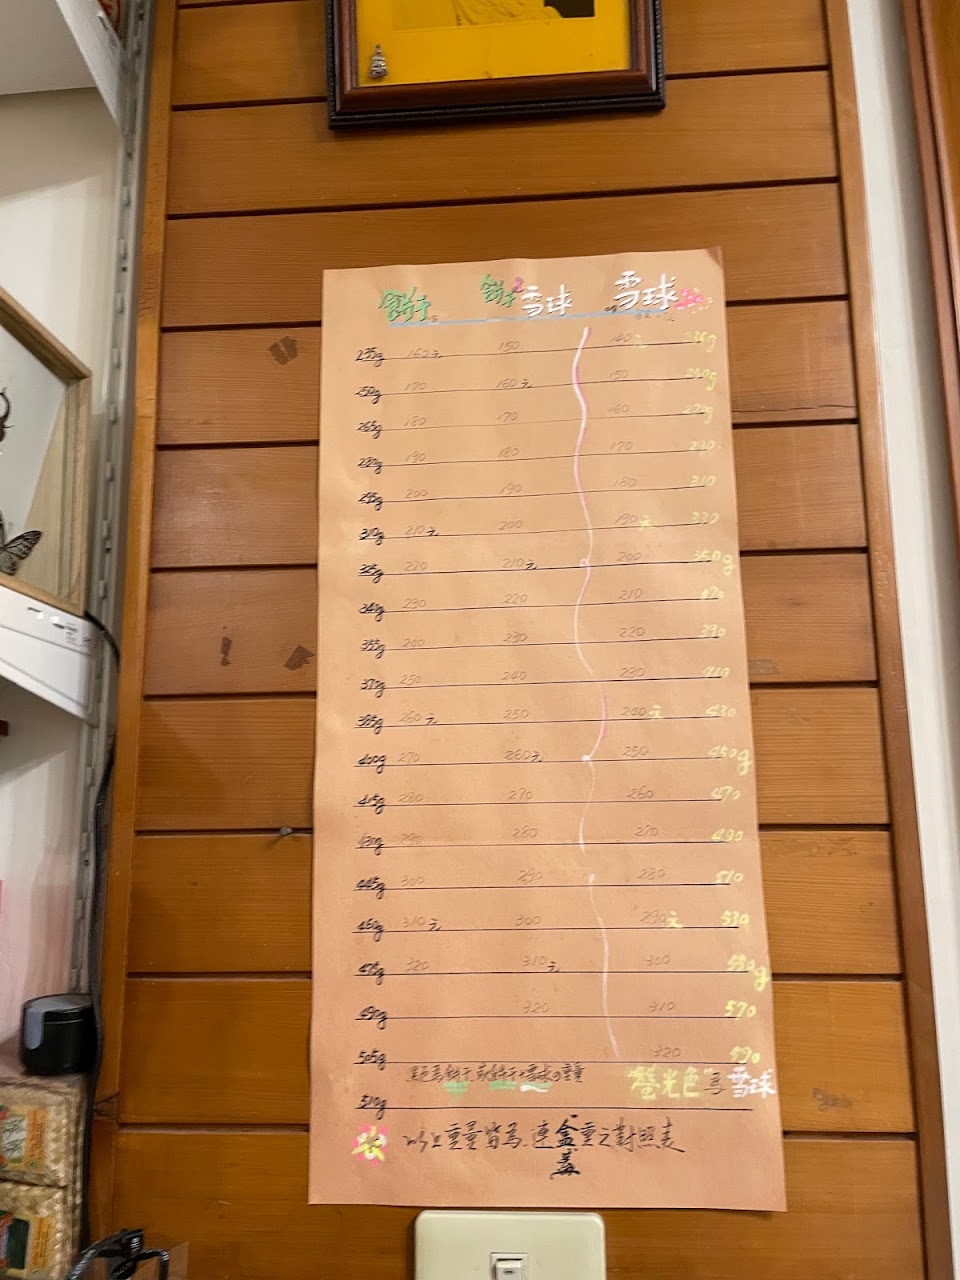 餅干 餅干2雪球 雪球
235g 160元 150 140元 235g
250g 170 160元 150 250g
265g 180 170 160 270g
280g 190 180 170 290
295g 200 190 180 310
310g 210元 200 190元 330
325g 220 210元 200 350g
340g 230 220 210 370
355g 240 230 220 390
370g 250 240 230 410
385g 260元 250 240元 430
400g 270 260元 250 450g
415g 280 270 260 470
430g 290 280 270 490
445g 300 290 280 510
460g 310元 300 290元 530
475g 320 310元 300 550g
490g 320 310 570
505g 320 590
黑色為餅干或餅干+雪球の重量 "螢光色"為雪球
510g
以上重量皆為、連盒蓋重之對照表